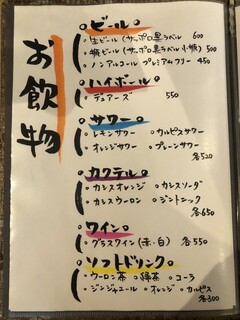 お飲物
ビール
・生ビール(サッポロ黒ラベル 600
・瓶ビール(サッポロ黒ラベル小瓶) 500
・ノンアルコール プレミアムフリー 450
ハイボール
・デュアーズ 550
サワー
・レモンサワー ・カルピスサワー
・オレンジサワー ・プレーンサワー
各520
カクテル
・カシスオレンジ ・カシスソーダ
・カシスウーロン ・ジントニック
各650
ワイン
・グラスワイン(赤・白) 各550
ソフトドリンク
・ウーロン茶 ・緑茶 ・コーラ
・ジンジャエール ・オレンジ ・カルピス
各300